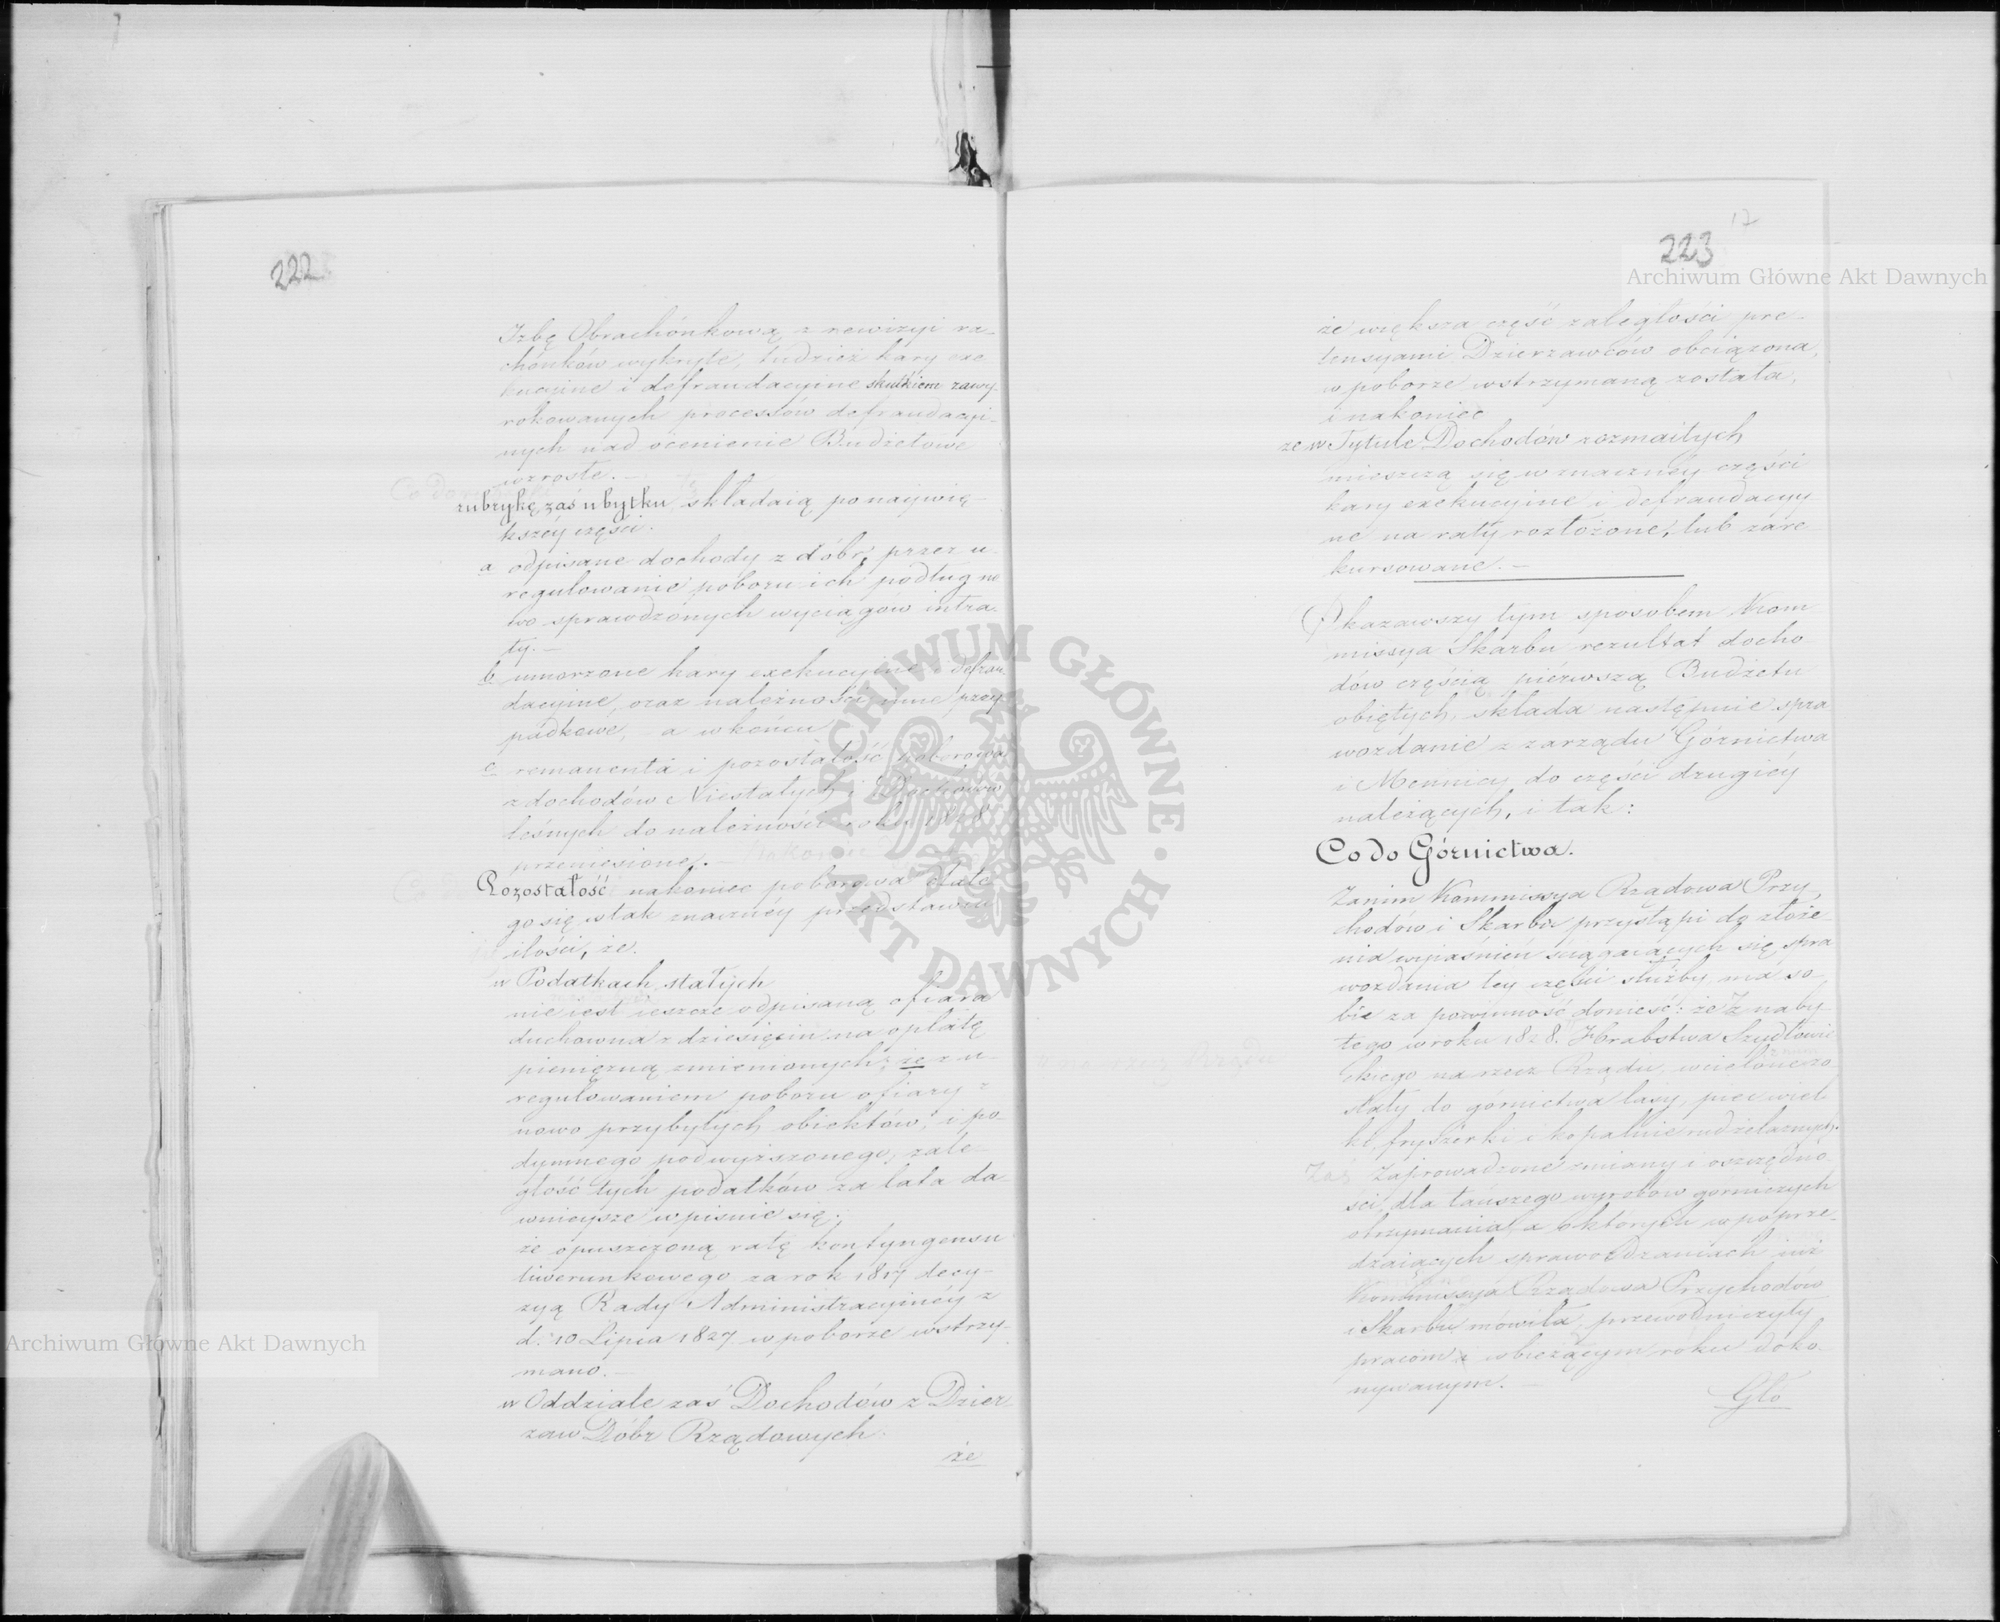 222
Izbę Obrachónkową z rewizyi ra-
chónków wykryte, tudzież kary exe
kucyine i defraudacyine skutkiem zawy-
rokowanych processów defraudacyi-
nych nad ocenienie Budżetowe
wzrosłe. -
rubrykę zaś ubytku składaią po naywię-
kszéy części:
a odpisane dochody z dóbr, przez u-
regulowanie poboru ich podług no
wo sprawdzónych wyciągów intra-
ty. -
b umorzone kary exekucyine i defrau-
dacyine, oraz należności inne przy-
padkowe, - a w końcu
c remanenta i pozostałość poborowa
z dochodów Niestałych i Dochodów
leśnych do należności roku 1828
przeniesione. -
Pozostałość nakoniec poborowa dlate
go się w tak znacznéy przedstawia
ilości, że.
w Podatkach stałych
nie iest ieszcze odpisaną ofiara
duchowna z dziesięcin na opłatę
pieniężną zmienionych; że z u-
regulowaniem poboru ofiary z
nowo przybyłych obiektów, i po-
dymnego podwyższonego, zale-
głość tych podatków za lata da-
wnieysze wpisuie się;
że opuszczoną ratę kontyngensu
liwerunkowego za rok 1817 decy-
zyą Rady Administracyinéy z
d. 10 Lipca 1827 w poborze wstrzy-
mano. -
w Oddziale zaś Dochodów z Dzier
żaw Dóbr Rządowych.
że
17
223
że większa część zaległości pre-
tensyami Dzierżawców obciążona,
w poborze wstrzymaną została,
i nakoniec
że w Tytule Dochodów rozmaitych
mieszczą się w znaczney części
kary exekucyine i defraudacyy
ne na raty rozłożone, lub zare
kursowane. -
Okazawszy tym sposobem Kom
missya Skarbu rezultat docho
dów częścią pierwszą Budżetu
obiętych, składa następnie spra
wozdanie z zarządu Górnictwa
i Mennicy do części drugiéy
należących, i tak:
Co do Górnictwa.
Zanim Kommissya Rządowa Przy-
chodów i Skarbu przystąpi do złoże-
nia wyiaśnień ściągaiących się spra
wozdania téy części służby, ma so-
bie za powinność donieść: że Z naby-
tego w roku 1828. Hrabstwa Szydłowie
ckiego na rzecz Rządu, wcielone zo
stały do górnictwa lasy, piec wiel-
ki, fryszerki i kopalnie rud żelaznych.
Zaprowadzone zmiany i oszczędno-
ści, dla tańszego wyrobów górniczych
otrzymania, a o których w poprze-
dzaiących sprawozdaniach iuż
Kommissya Rządowa Przychodów
i Skarbu mówiła, przewodniczyły
pracom w bieżącym roku doko-
nywanym. -
Głó
ARCHIWUM GŁÓWNE AKT DAWNYCH
Archiwum Główne Akt Dawnych
Archiwum Główne Akt Dawnych